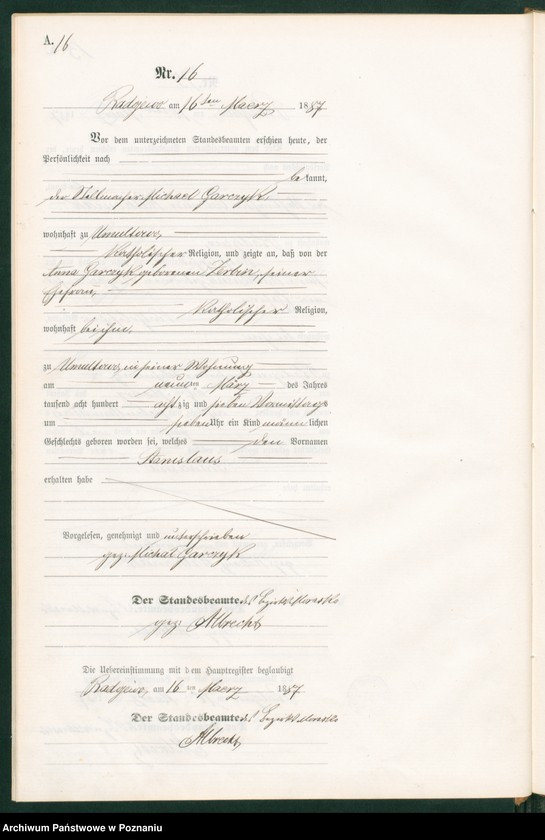 A. 16
Nr. 16
Radzewo am 16ten Maerz 1887
Vor dem unterzeichneten Standesbeamten erschien heute, der
Persönlichkeit nach
bekannt,
der Michael Garczyk,
wohnhaft zu Umultowo,
katholischer Religion, und zeigte an, daß von der
Anna Garczyk geborenen seiner
Ehefrau,
katholischer Religion,
wohnhaft bei ihm,
zu Umultowo in seiner Wohnung
am neunten März des Jahres
tausend acht hundert achtzig und sieben Vormittags
um sieben Uhr ein Kind männlichen
Geschlechts geboren worden sei, welches den Vornamen
Stanislaus
erhalten habe
Vorgelesen, genehmigt und unterschrieben
gez. Michał Garczyk
Der Standesbeamte des Bezirks Morasko
gez. Albrecht
Die Uebereinstimmung mit dem Hauptregister beglaubigt
am 16ten Maerz 1887
Der Standesbeamte des Bezirks Morasko
Albrecht
Archiwum Państwowe w Poznaniu